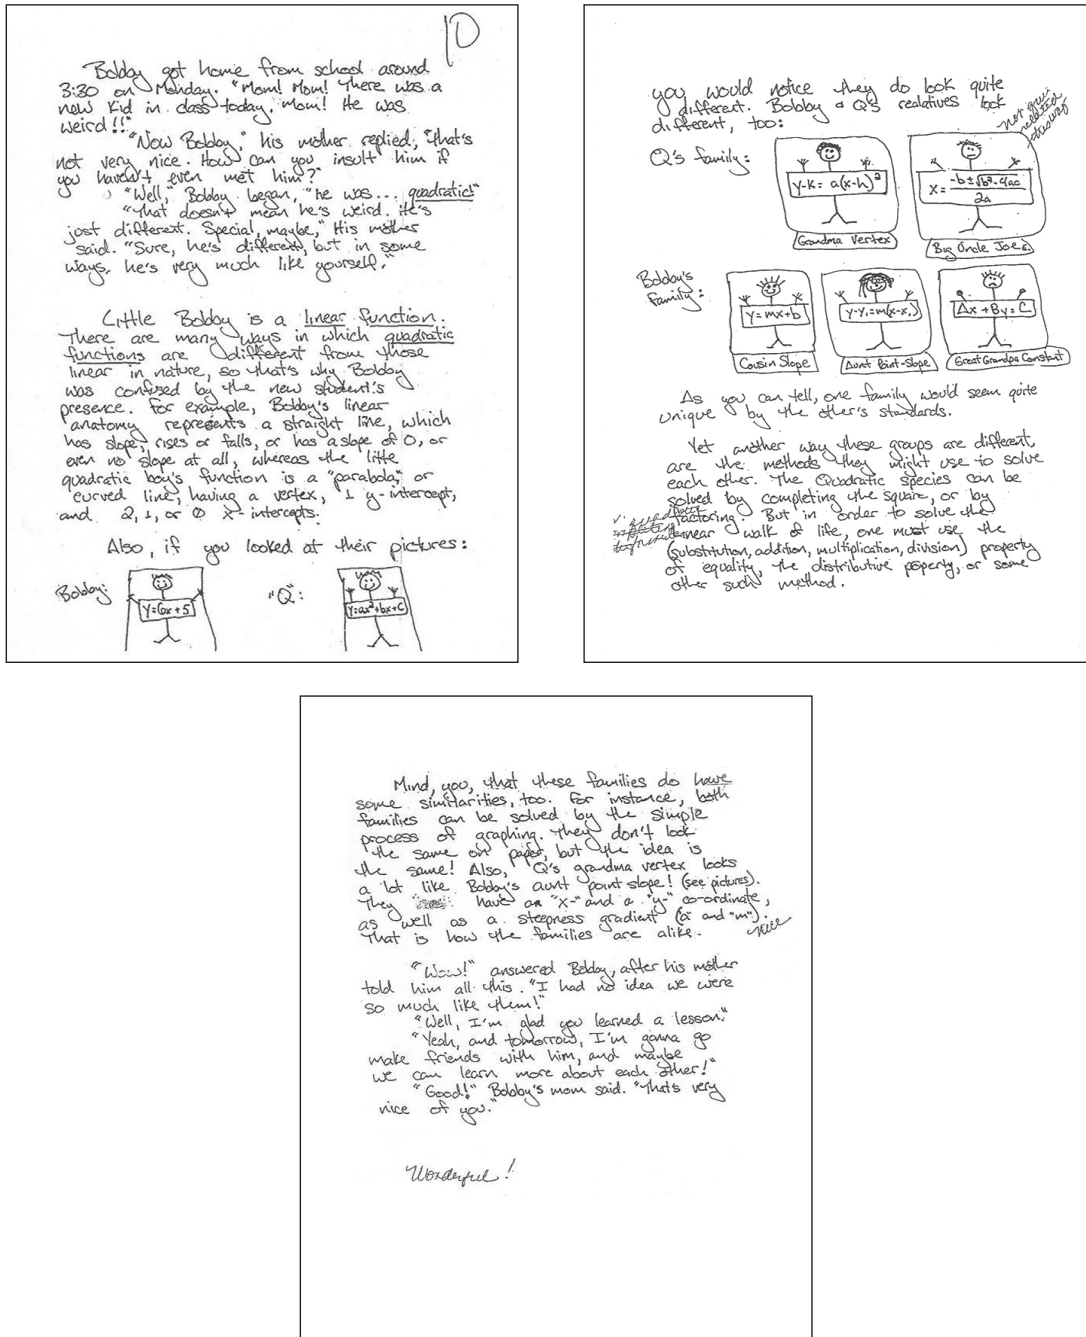 10
Bobby got home from school around
3:30 on Monday. "Mom! Mom! There was a
new kid in class today, mom! He was
weird!!"
"Now Bobby," his mother replied, "that's
not very nice. How can you insult him if
you haven't even met him?"
"Well," Bobby began, "he was... quadratic!"
"That doesn't mean he's weird. He's
just different. Special, maybe," His mother
said. "Sure, he's different, but in some
ways, he's very much like yourself."
Little Bobby is a linear function.
There are many ways in which quadratic
functions are different from those
linear in nature, so that's why Bobby
was confused by the new student's
presence. For example, Bobby's linear
anatomy represents a straight line, which
has slope, rises or falls, or has a slope of 0, or
even no slope at all, whereas the little
quadratic boy's function is a "parabola," or
curved line, having a vertex, 1 y-intercept,
and 2, 1, or 0 x-intercepts.
Also, if you looked at their pictures:
Bobby:
y=6x+5
"Q":
y=ax²+bx+c
you would notice they do look quite
different. Bobby & Q's realatives look
different, too:
Q's family:
y-k = a(x-h)²
Grandma Vertex
x = -b±√b²-4ac
2a
Big Uncle Joe
Bobby's
family:
y=mx+b
Cousin Slope
y-y₁=m(x-x₁)
Aunt Point-Slope
Ax + By = C
Great Grandpa Constant
As you can tell, one family would seem quite
unique by the other's standards.
Yet another way these groups are different,
are the methods they might use to solve
each other. The Quadratic species can be
solved by completing the square, or by
factoring. But in order to solve the
linear walk of life, one must use the
(substitution, addition, multiplication, division) property
of equality, the distributive poperty, or some
other such method.
Mind, you, that these families do have
some similarities, too. For instance, both
families can be solved by the simple
process of graphing. They don't look
the same on paper, but the idea is
the same! Also, Q's grandma vertex looks
a lot like Bobby's aunt point slope! (see pictures).
They have an "x-" and a "y-" co-ordinate,
as well as a steepness gradient ("a" and "m").
That is how the families are alike.
nice
"Wow!" answered Bobby, after his mother
told him all this. "I had no idea we were
so much like them!"
"Well, I'm glad you learned a lesson."
"Yeah, and tomorrow, I'm gonna go
make friends with him, and maybe
we can learn more about each other!"
"Good!" Bobby's mom said. "That's very
nice of you."
Wonderful!